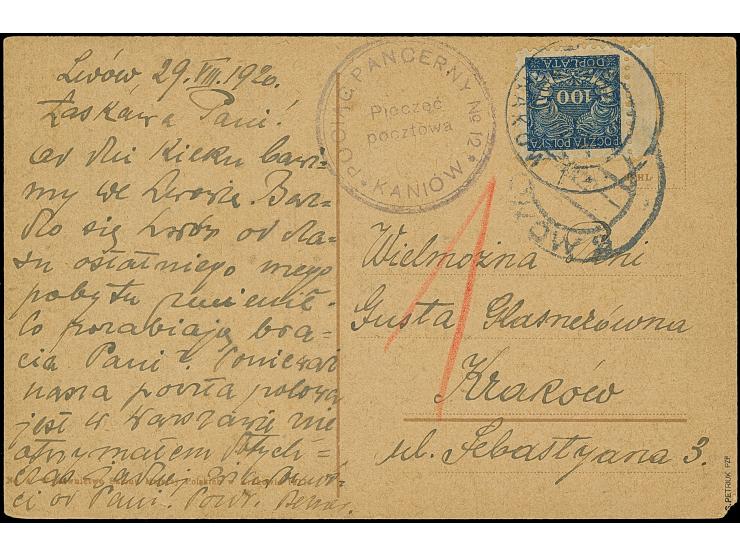 Lwów 29.VIII.1920.
Łaskawa Pani!
Od dni kieku bawi-
my we Lwowie. Bar-
dzo się Lwów od cza-
su ostatniego mego
pobytu zmienił.
Co porabiają bra-
cia Pani? Ponieważ
nasza poczta polowa
jest w Warszawie nie
otrzymałem dotych-
czas żadnej
ci od Pani. Pozdr.
POCIĄG PANCERNY № 12
* KANIÓW *
Pieczęć
pocztowa
DOPŁATA
100
POCZTA POLSKA
KRAKÓW
1
Wielmożna Pani
Gusta Glasnerówna
Kraków
ul. Sebastyana 3.
S. PETRIUK PZF